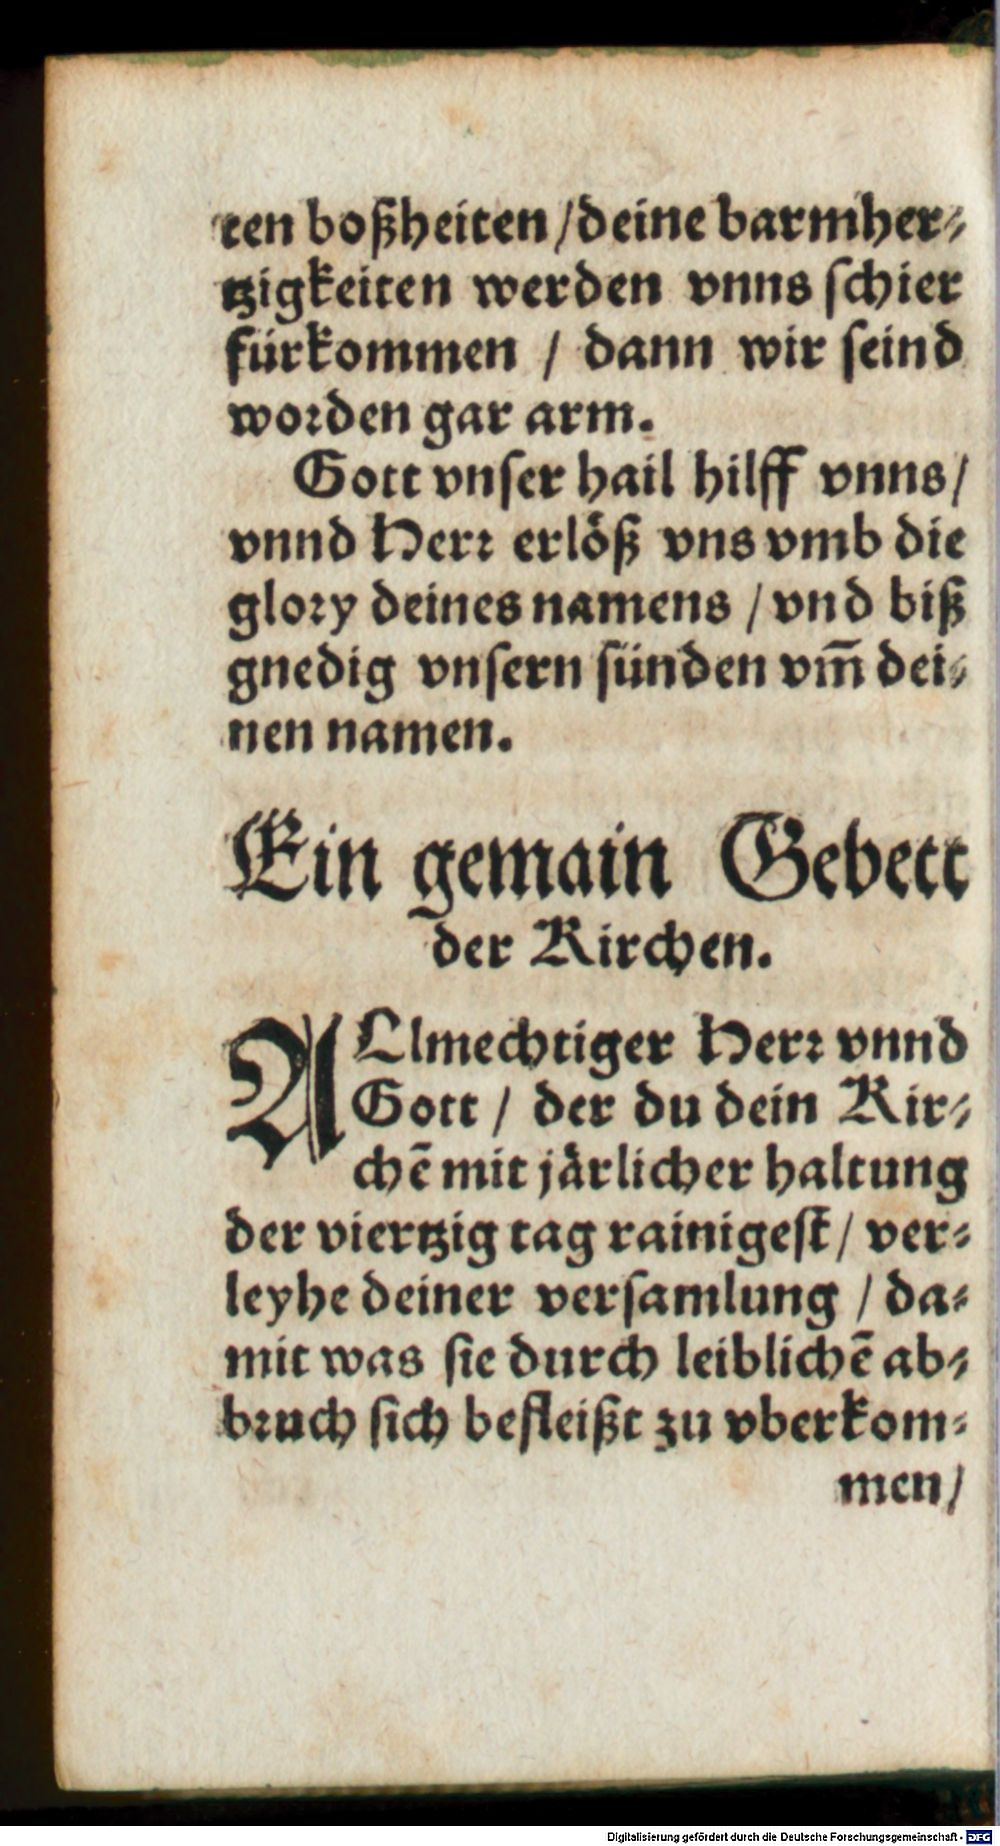 ten boßheiten / deine barmher⸗
tzigkeiten werden vnns ſchier
fürkommen / dann wir ſeind
woꝛden gar arm.
Gott vnſer hail hilff vnns /
vnnd Herꝛ erlöß vns vmb die
gloꝛy deines namens / vnd biß
gnedig vnſern ſünden vm̄ dei⸗
nen namen.
Ein gemain Gebett
der Kirchen.
ALlmechtiger Herꝛ vnnd
Gott / der du dein Kir⸗
chē mit järlicher haltung
der viertzig tag rainigeſt / ver⸗
leyhe deiner verſamlung / da⸗
mit was ſie durch leiblichē ab⸗
bꝛuch ſich befleißt zu vberkom⸗
men /
Digitalisierung gefördert durch die Deutsche Forschungsgemeinschaft - DFG